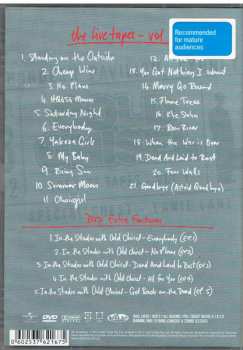 the live tapes - vol
Recommended
for mature
audiences
1. Standing on the Outside
2. Cheap Wine
3. No Plans
4. HQ454 Monroe
5. Saturday Night
6. Everybody
7. Yakuza Girls
8. My Baby
9. Rising Sun
10. Summer Moon
11. Choirgirl
12. All
13. You Got Nothing I Want
14. Merry Go Round
15. Flame Trees
16. Khe Sanh
17. Bow River
18. When the War is Over
19. Dead And Laid to Rest
20. Four Walls
21. Goodbye (Astrid Goodbye)
DVD Extra Features
1. In the Studio with Cold Chisel - Everybody (EP.1)
2. In the Studio with Cold Chisel - No Plans (EP.2)
3. In the Studio with Cold Chisel - Dead And Laid to Rest (EP.3)
4. In the Studio with Cold Chisel - All for You (EP.4)
5. In the Studio with Cold Chisel - Get Back on the Road (EP.5)
DVD
0 602537 621675